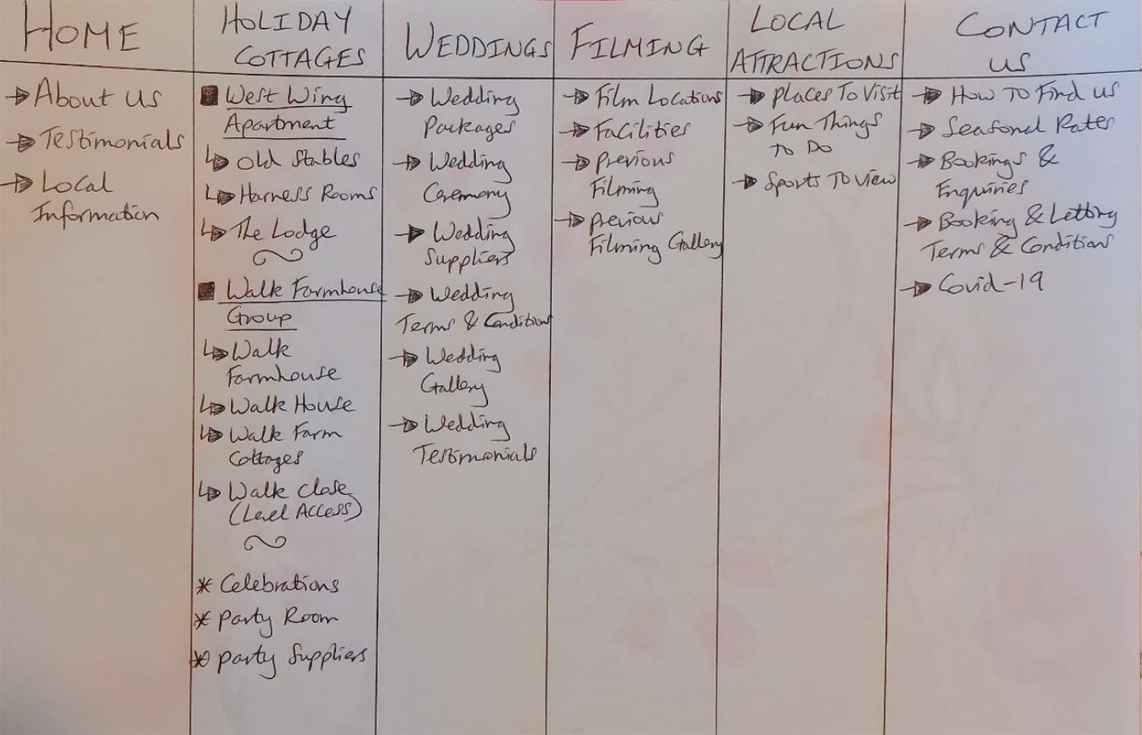 HOME
→ About Us
→ Testimonials
→ Local
Information
HOLIDAY
COTTAGES
■ West Wing
Apartment
↳ Old Stables
↳ Harness Rooms
↳ The Lodge
■ Walk Farmhouse
Group
↳ Walk
Farmhouse
↳ Walk House
↳ Walk Farm
Cottages
↳ Walk Close
(Level Access)
* Celebrations
* Party Room
* Party Suppliers
WEDDINGS
→ Wedding
Packages
→ Wedding
Ceremony
→ Wedding
Suppliers
→ Wedding
Terms & Conditions
→ Wedding
Gallery
→ Wedding
Testimonials
FILMING
→ Film Locations
→ Facilities
→ Previous
Filming
→ Previous
Filming Gallery
LOCAL
ATTRACTIONS
→ Places To Visit
→ Fun Things
To Do
→ Sports To View
CONTACT
US
→ How To Find us
→ Seasonal Rates
→ Bookings &
Enquiries
→ Booking & Letting
Terms & Conditions
→ Covid-19